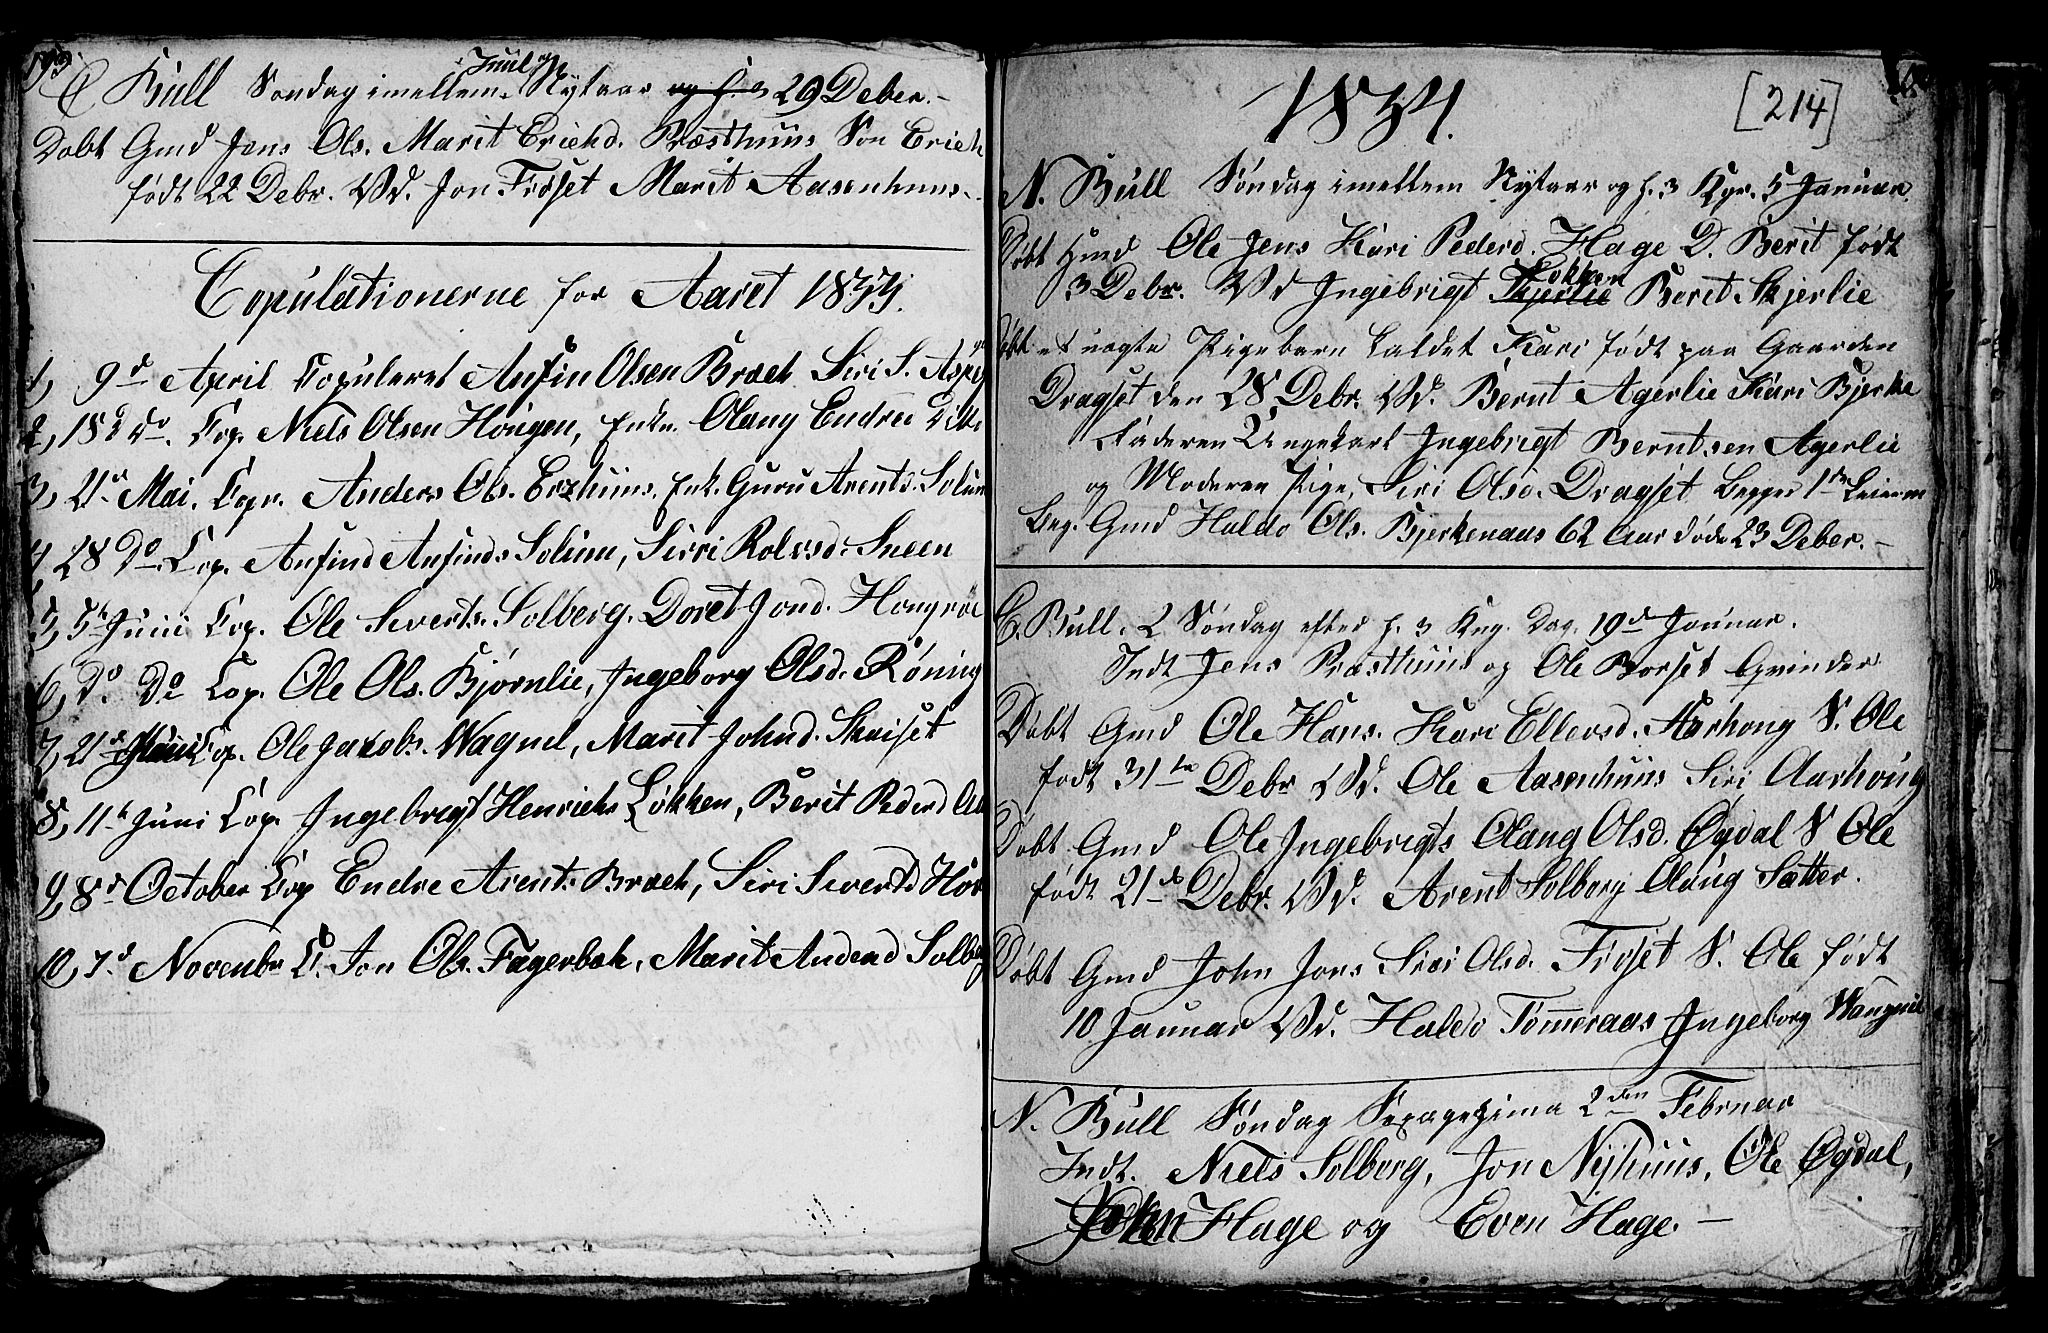 C Bull Søndag imellem Juul og Nytaar og f. 3 29 Deber.
Døbt Gmd Jens Ols. Marit Erichd. Præsthuus Søn Erich
født 22 Debr. Vd. Jon Frøset Marit Aasenhuus
Copulationerne for Aaret 1833.
1, 9d April Copuleret Anfin Olsen Bræch Siri S. Asp
2, 18d Do. Cop. Niels Olsen Hougen, Enke Olaug Endres
3, 21d Mai. Copr. Anders Ols. Erzhuus, Enk. Guru Arents. Solum
4, 28 Do. Cop. Anfind Anfinds Solum, Sirri Rolvsd. Sneen
5, 5t Junii Cop. Ole Siverts. Solberg. Doret Jond. Hongrøe
6, Do Do Cop. Ole Ols. Bjørnlie, Ingeborg Olsd. Røning
7, 21d Cop. Ole Jacobs. Wagnel, Marit Johnd. Skaiset
8, 11t Juni Cop. Ingebrigt Henrichs Løkken, Berit Pederd
9, 8d October Cop Endre Arents. Bræck, Siri Sivertd
10, 7d Novembr C. Jon Ols. Fagerbak, Marit Andersd Solberg
1834.
[214]
N. Bull Søndag imellem Nytaar og f. 3 Kgr. 5 Januar.
Døbt Hmd Ole Jens Kari Pedersd. Hage D. Berit født
3 Debr. Vd Ingebrigt Skjerlie Løkken Berit Skjerlie
Døbt et uægte Pigebarn kaldet Kari født paa Gaarden
Dragset den 28 Debr. Vd. Bernt Agerlie Kari Bjerke
Faderen Ungekarl Ingebrigt Berntsen Agerlie
og Moderen Pige, Siri Olsd. Dragset begges 1ste Leierm
Beg. Gmd Haldo Ols. Bjerkenaas 62 Aar døde 23 Deber.
C. Bull. 2 Søndag efter f. 3 Kng. Dag. 19d Januar.
Indt Jens Præsthuus og Ole Borset Qvinder
Døbt Gmd Ole Hans. Kari Ellevsd. Aarhoug S. Ole
født 31te Debr Vd. Ole Aasenhuus Siri Aarhoug
Døbt Gmd Ole Ingebrigts Olaug Olsd. Øydal S Ole
født 21de Debr. Vd. Arent Solberg Olaug Sætter.
Døbt Gmd John Jons Siri Olsd. Frøset S. Ole født
10 Januar Vd. Haldo Tømmeraas Ingeborg Wangnel
N. Bull Søndag Sexagezima 2den Februar
Indt. Niels Solberg, Jon Nyhuus, Ole Øydal,
John Hage og Even Hage.